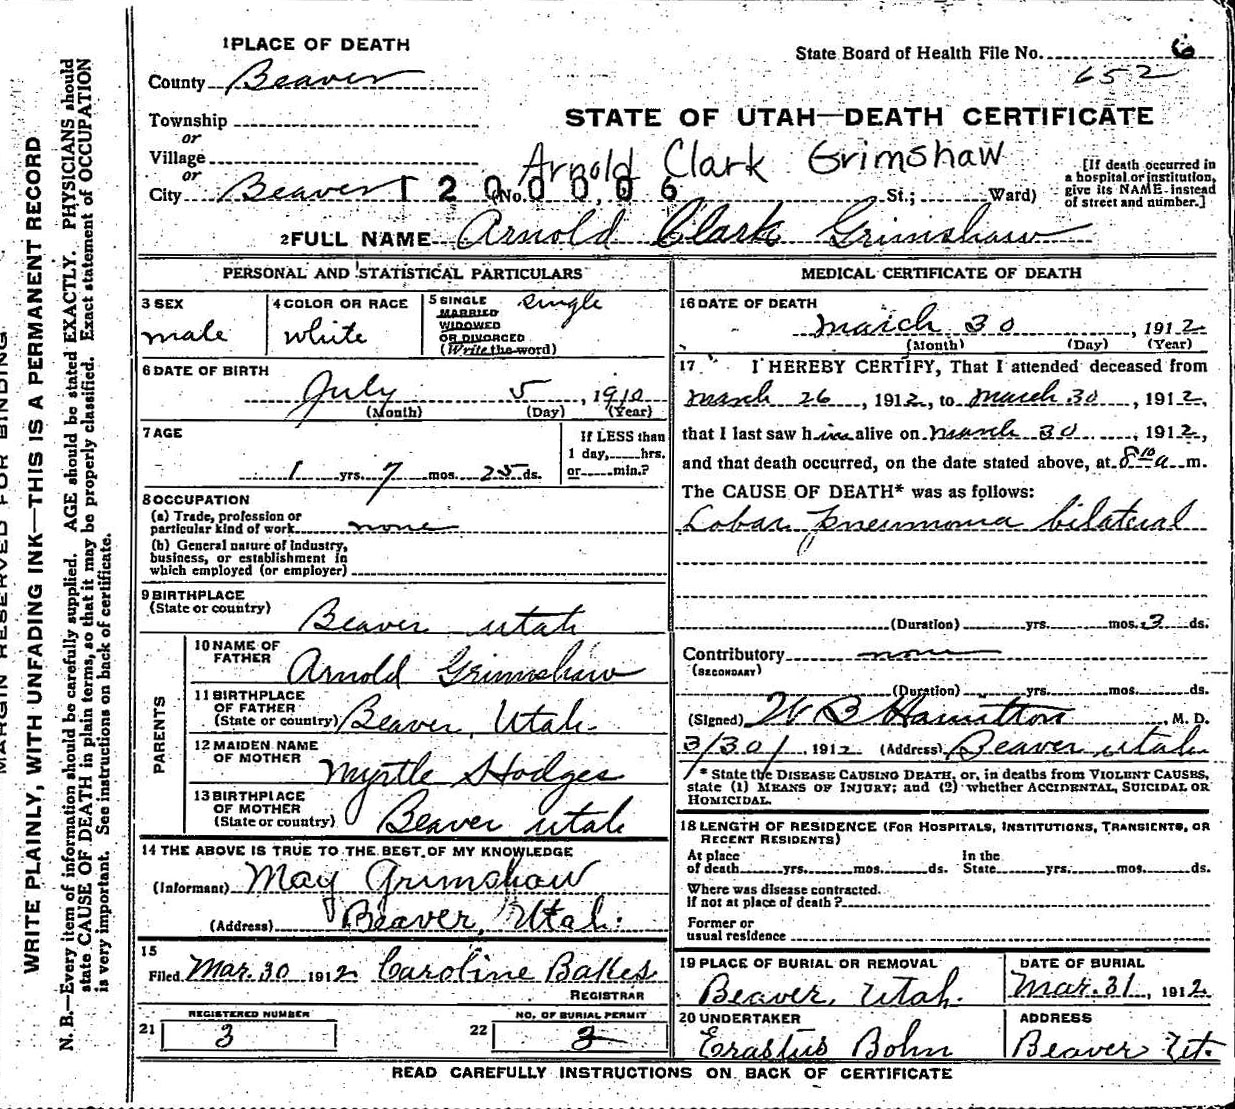 1 PLACE OF DEATH
State Board of Health File No. 6
652
County Beaver
STATE OF UTAH—DEATH CERTIFICATE
Township
or
Village
or
Arnold Clark Grimshaw
City Beaver (No. St.; Ward)
1200006
[If death occurred in
a hospital or institution,
give its NAME instead
of street and number.]
2 FULL NAME Arnold Clark Grimshaw
PERSONAL AND STATISTICAL PARTICULARS
3 SEX
male
4 COLOR OR RACE
white
5 SINGLE single
MARRIED
WIDOWED
OR DIVORCED
(Write the word)
6 DATE OF BIRTH
July 5, 1910
(Month) (Day) (Year)
7 AGE
1 yrs. 7 mos. 25 ds.
If LESS than
1 day, hrs.
or min.?
8 OCCUPATION
(a) Trade, profession or
particular kind of work none
(b) General nature of industry,
business, or establishment in
which employed (or employer)
9 BIRTHPLACE
(State or country) Beaver Utah
PARENTS
10 NAME OF
FATHER Arnold Grimshaw
11 BIRTHPLACE
OF FATHER
(State or country) Beaver, Utah.
12 MAIDEN NAME
OF MOTHER Myrtle Hodges
13 BIRTHPLACE
OF MOTHER
(State or country) Beaver Utah
14 THE ABOVE IS TRUE TO THE BEST OF MY KNOWLEDGE
(Informant) May Grimshaw
(Address) Beaver, Utah.
15
Filed Mar. 30 1912 Caroline Bakes
REGISTRAR
21 REGISTERED NUMBER
3
22 NO. OF BURIAL PERMIT
3
MEDICAL CERTIFICATE OF DEATH
16 DATE OF DEATH
March 30, 1912
(Month) (Day) (Year)
17 I HEREBY CERTIFY, That I attended deceased from
March 26, 1912, to March 30, 1912,
that I last saw him alive on March 30, 1912,
and that death occurred, on the date stated above, at 8 10 a m.
The CAUSE OF DEATH* was as follows:
Lobar pneumonia bilateral
(Duration) yrs. mos. 3 ds.
Contributory none
(SECONDARY)
(Duration) yrs. mos. ds.
(Signed) W B Hamilton, M. D.
3/30/, 1912 (Address) Beaver Utah
* State the DISEASE CAUSING DEATH, or, in deaths from VIOLENT CAUSES,
state (1) MEANS OF INJURY; and (2) whether ACCIDENTAL, SUICIDAL OR
HOMICIDAL.
18 LENGTH OF RESIDENCE (FOR HOSPITALS, INSTITUTIONS, TRANSIENTS, OR
RECENT RESIDENTS)
At place
of death yrs. mos. ds.
In the
State yrs. mos. ds.
Where was disease contracted.
If not at place of death?
Former or
usual residence
19 PLACE OF BURIAL OR REMOVAL
Beaver, Utah.
DATE OF BURIAL
Mar. 31, 1912
20 UNDERTAKER
Erastus Bohn
ADDRESS
Beaver Ut.
READ CAREFULLY INSTRUCTIONS ON BACK OF CERTIFICATE
MARGIN RESERVED FOR BINDING
WRITE PLAINLY, WITH UNFADING INK—THIS IS A PERMANENT RECORD
N. B.—Every item of information should be carefully supplied. AGE should be stated EXACTLY. PHYSICIANS should
state CAUSE OF DEATH in plain terms, so that it may be properly classified. Exact statement of OCCUPATION
is very important. See instructions on back of certificate.